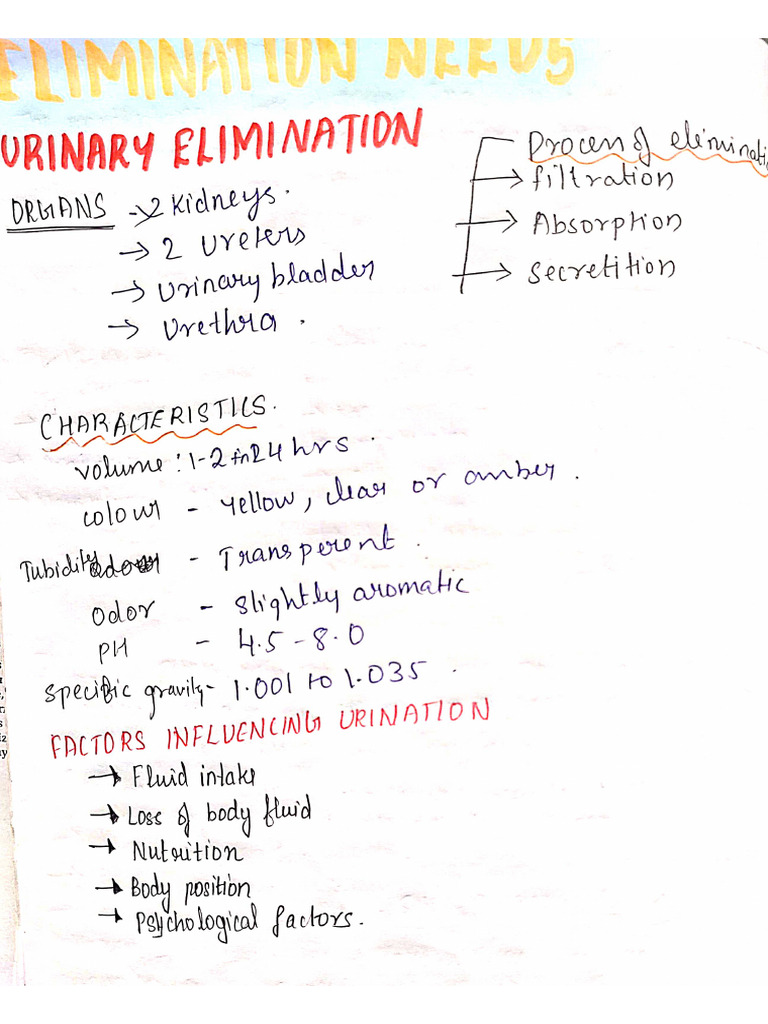 ELIMINATION NEEDS
URINARY ELIMINATION
ORGANS → 2 Kidneys.
→ 2 Ureters
→ Urinary bladder
→ Urethra.
Process of eliminati
→ filtration
→ Absorption
→ Secretition
CHARACTERISTICS.
volume : 1-2 in 24 hrs.
colour - yellow, clear or amber.
Tubidity - Transperent.
Odor - slightly aromatic
PH - 4.5 - 8.0
Specific gravity - 1.001 to 1.035.
FACTORS INFLUENCING URINATION
→ Fluid intake
→ Loss of body fluid
→ Nutrition
→ Body position
→ Psychological factors.